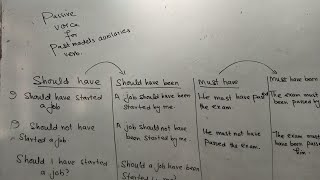 Passive
voice
for
Past models auxilaries
verb.
Should have
Should have been
Must have
Must have been
I Should have started
a job
A job should have been
started by me.
He must have passed
the exam.
The exam must
been passed by
I Should not have
Started a job
A job should not have
been started by me.
He must not have
passed the exam.
The exam must
been passed by
him
Should I have started
a job?
Should a job have been
Started by me?